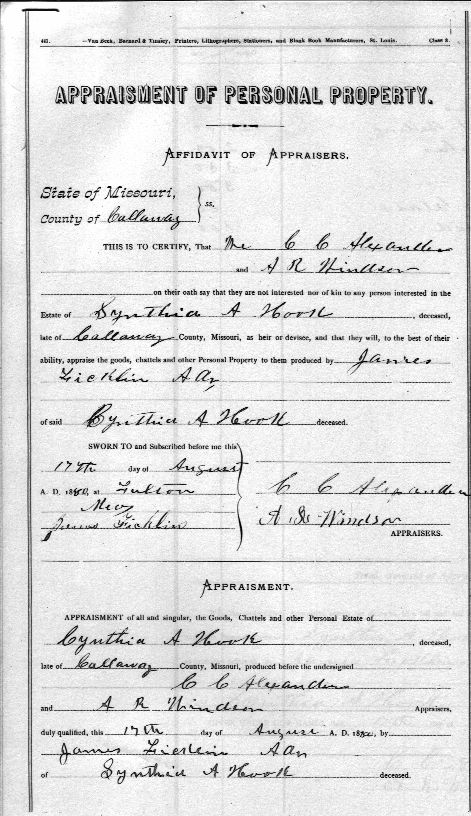 —Van Beek, Barnard & Tinsley, Printers, Lithographers, Stationers, and Blank Book Manufacturers, St. Louis. Class 3.
APPRAISMENT OF PERSONAL PROPERTY.
AFFIDAVIT OF APPRAISERS.
State of Missouri,
County of Callaway } ss.
THIS IS TO CERTIFY, That We C C Alexander
and A R Windsor
on their oath say that they are not interested nor of kin to any person interested in the
Estate of Synthia A Hook deceased,
late of Callaway County, Missouri, as heir or devisee, and that they will, to the best of their
ability, appraise the goods, chattels and other Personal Property to them produced by James
Ficklin
of said Cynthia A Hook deceased.
SWORN TO and Subscribed before me this
17th day of August
A. D. 18 at Fulton
C C Alexander
James Ficklin
A R Windsor
APPRAISERS.
APPRAISMENT.
APPRAISMENT of all and singular, the Goods, Chattels and other Personal Estate of
Cynthia A Hook, deceased,
late of Callaway County, Missouri, produced before the undersigned
C C Alexander
and A R Windsor Appraisers,
duly qualified, this 17th day of August A. D. 18 by
James Ficklin
of Synthia A Hook deceased.